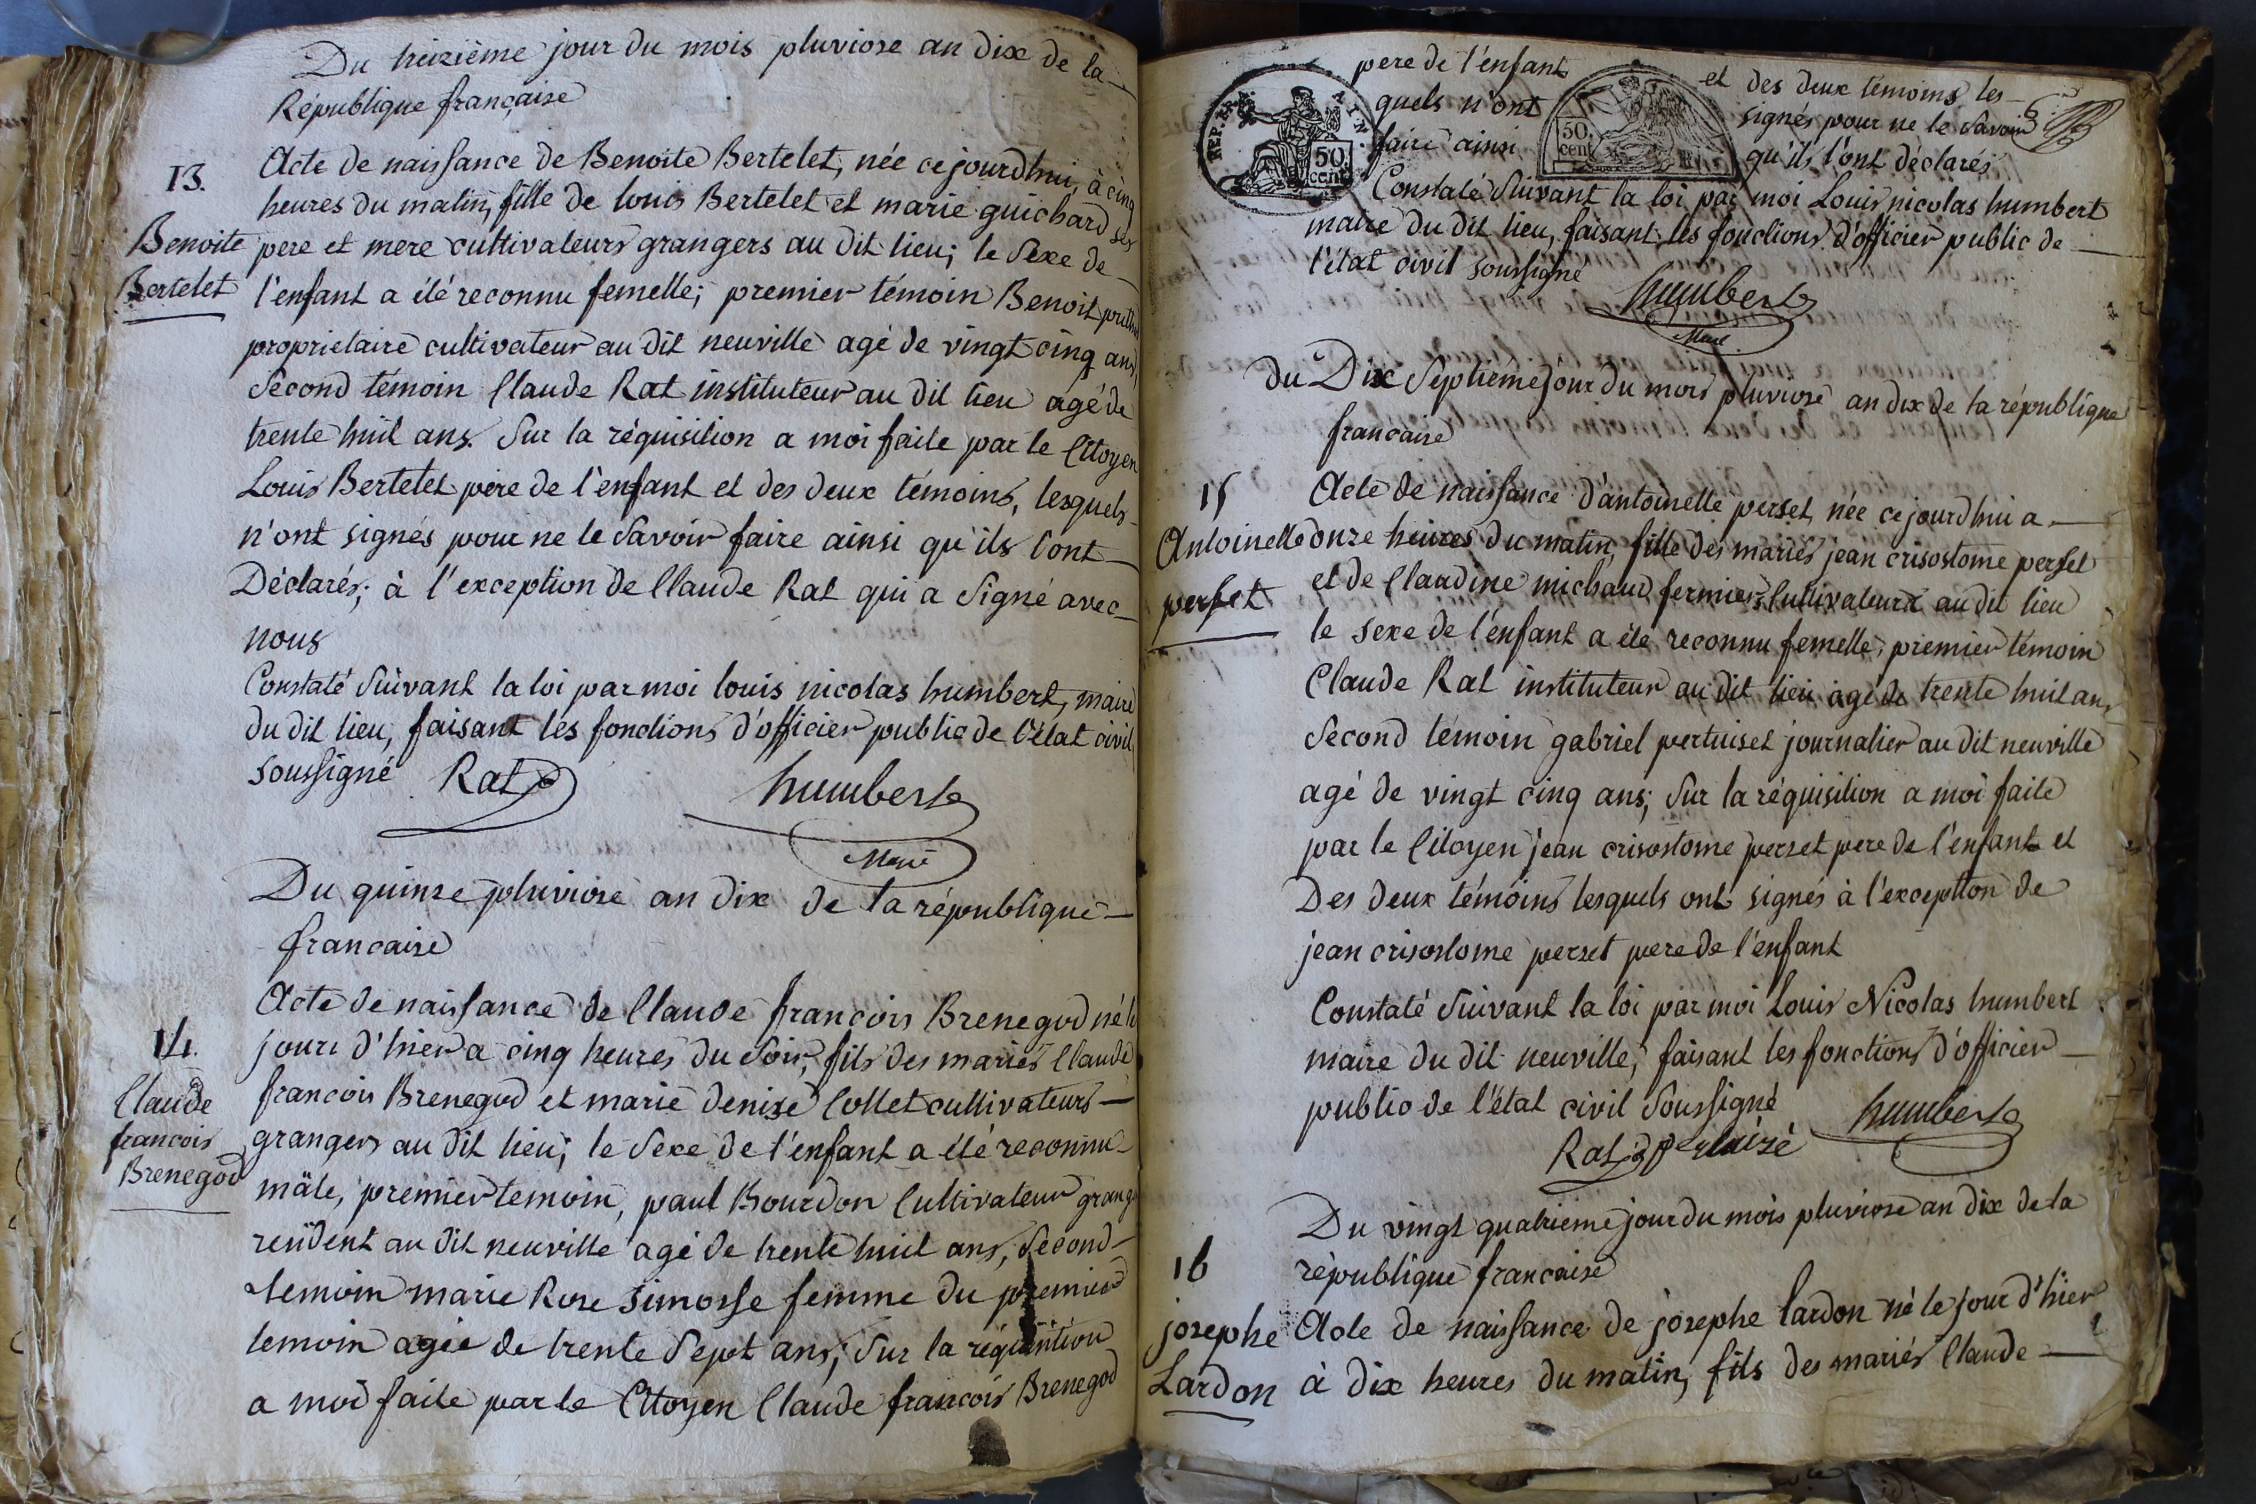 Du treizième jour du mois pluviose an dix de la
République française
13.
Acte de naissance de Benoite Bertelet, née ce jourdhui, à cinq
heures du matin, fille de louis Bertelet et marie guichard ses
Benoite
Bertelet
pere et mere cultivateurs grangers au dit lieu; le Sexe de
l'enfant a été reconnu femelle; premier témoin Benoit
proprietaire cultivateur au dit neuville agé de vingt cinq ans,
Second témoin Claude Rat instituteur au dit lieu agé de
trente huit ans. Sur la réquisition a moi faite par le Citoyen
Louis Bertelet père de l'enfant et des deux témoins, lesquels
n'ont signés pour ne le Savoir faire ainsi qu'ils l'ont
Déclarés; à l'exception de Claude Rat qui a Signé avec
nous
Constaté Suivant la loi par moi louis nicolas humbert, maire
du dit lieu, faisant les fonctions d'officier public de l'état civil
soussigné Rat humbert
Maire
Du quinze pluviose an dix de la république
francaise
14.
Claude
francois
Brenegod
Acte de naissance de Claude françois Brenegod né le
jour d'hier a cinq heures du Soir, fils des mariés Claude
francois Brenegod et marie denise Collet cultivateurs
grangers au dit lieu; le Sexe de l'enfant a été reconnu
mâle, premier temoin, paul Bourdon Cultivateur grang
résident au dit neuville agé de trente huit ans, Second
temoin marie Rose simosse femme du premier
temoin agée de trente Sept ans; Sur la réquisition
a moi faite par le Citoyen Claude francois Brenegod
pere de l'enfant et des deux témoins les
quels n'ont signés pour ne le Savoir
faire ainsi qu'ils l'ont déclarés
REP. FRA. 50. cent
50. cent
Constaté Suivant la loi par moi Louis nicolas humbert
maire du dit lieu, faisant les fonctions d'officier public de
l'état civil soussigné
humbert
Maire
du Dix Septieme jour du mois pluviose an dix de la république
francaise
15
Antoinette
perset
Acte de naissance d'antoinette perset, née ce jourdhui a
onze heures du matin, fille des mariés jean crisostome perset
et de Claudine michaud fermiers Cultivateurs au dit lieu
le sexe de l'enfant a été reconnu femelle, premier témoin
Claude Rat instituteur au dit lieu agé de trente huit ans
Second témoin gabriel pertuiset journalier au dit neuville
agé de vingt cinq ans; Sur la réquisition a moi faite
par le Citoyen jean crisostome perset pere de l'enfant et
Des deux témoins lesquels ont signés à l'exception de
jean crisostome perset pere de l'enfant
Constaté Suivant la loi par moi Louis Nicolas humbert
maire du dit neuville, faisant les fonctions d'officier
public de l'état civil Soussigné humbert
Rat
Du vingt quatrieme jour du mois pluviose an dix de la
république francaise
16
josephe
Lardon
Acte de naissance de josephe Lardon né le jour d'hier
à dix heures du matin, fils des mariés Claude